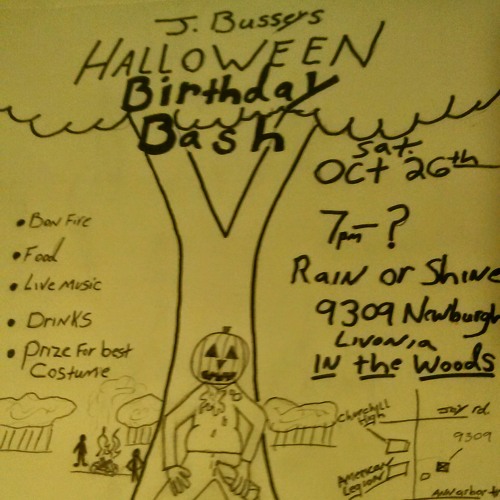 J. Bussers
HALLOWEEN
Birthday
Bash
Sat.
Oct 26th
7pm - ?
Rain or Shine
9309 Newburgh
Livonia
IN the Woods
• Bon Fire
• Food
• Live Music
• DRINKS
• Prize For best
Costume
Churchill
High
Joy rd.
9309
American
Legion
Ann arbor tr